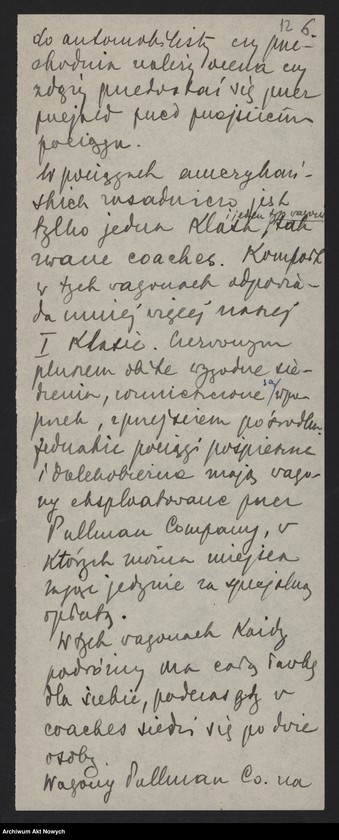 12 6.
do automobilisty czy prze-
chodnia należy ocena czy
zdąży przedostać się przez
przejazd przed przejściem
pociągu.
W pociągach amerykań-
skich zasadniczo jest
tylko jedna klasa, i jeden typ wagonów tak
zwane coaches. Komfort
w tych wagonach odpowia-
da mniej więcej naszej
I klasie. Czerwonym
pluszem obite wygodne sie-
dzenia, umieszczone są w po-
przek, z przejściem pośrodku.
Jednakże pociągi pośpieszne
i dalekobieżne mają wago-
ny eksploatowane przez
Pullman Company, w
których można miejsca
zająć jedynie za specjalną
opłatą.
W tych wagonach każdy
podróżny ma całą ławkę
dla siebie, podczas gdy w
coaches siedzi się po dwie
osoby.
Wagony Pullman Co. na
Archiwum Akt Nowych